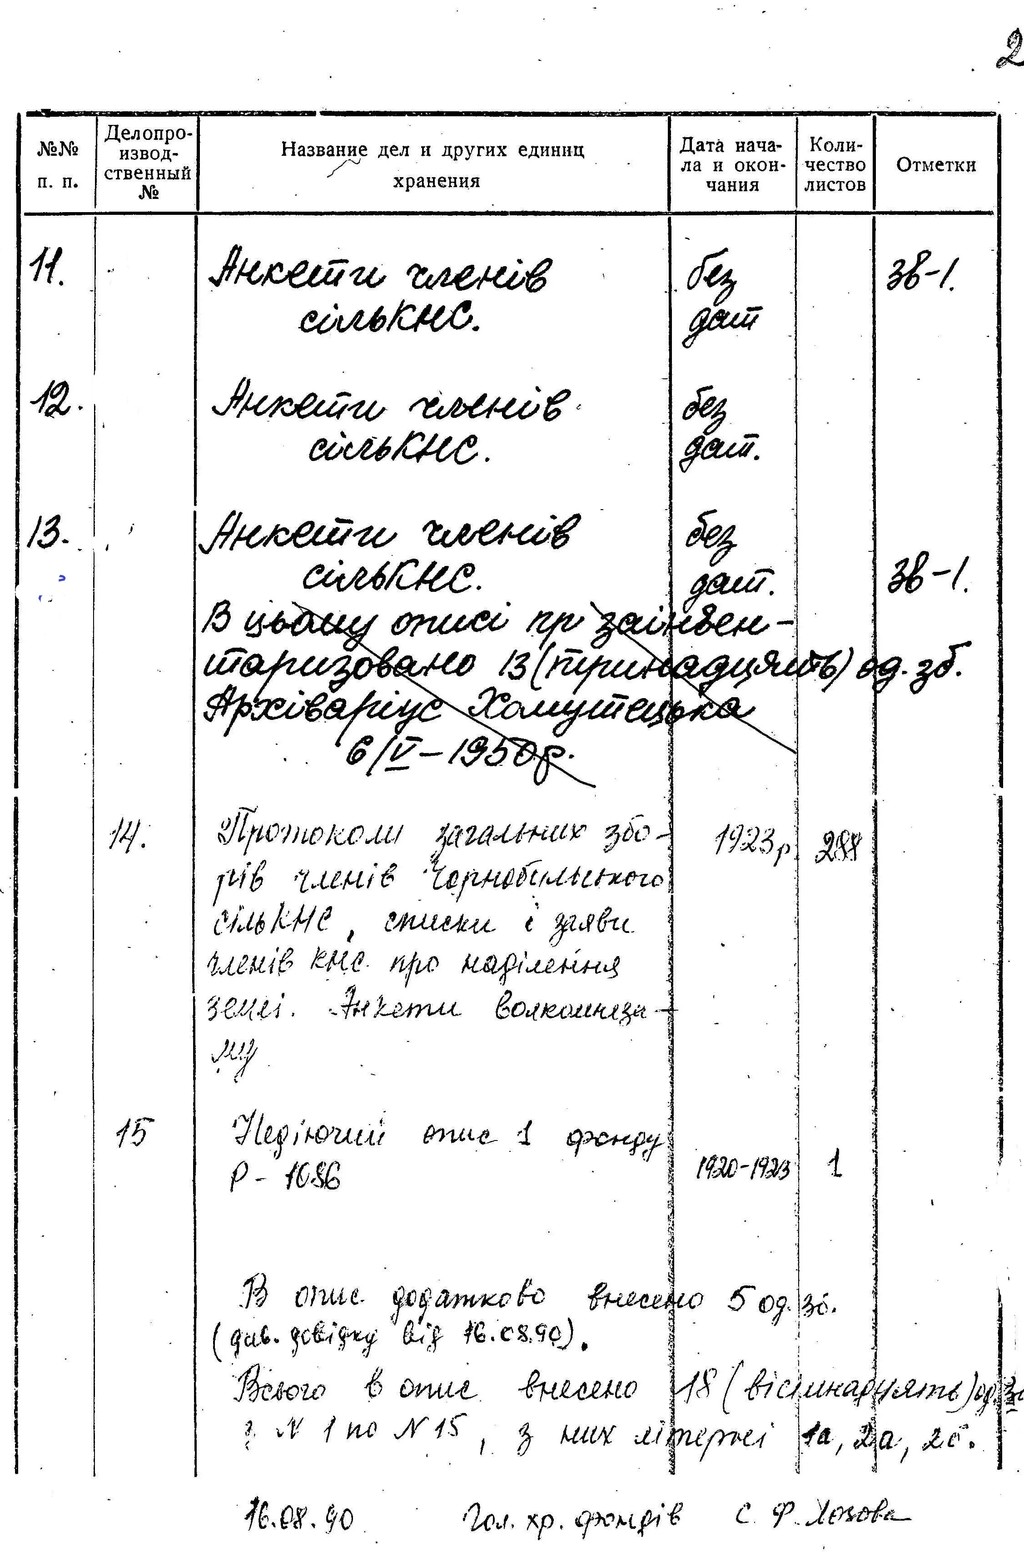 2
№№ п. п.
Делопро-
извод-
ственный
№
Название дел и других единиц
хранения
Дата нача-
ла и окон-
чания
Коли-
чество
листов
Отметки
11. Анкети членів без зв-1.
сількнс. дат
12. Анкети членів без
сількнс. дат.
13. Анкети членів без
сількнс. дат. зв-1.
В цьому описі пр заінвен-
таризовано 13 (тринадцять) од. зб.
Архіваріус Хомутецька
6/V-1950р.
14. Протоколи загальних збо- 1923р. 288
рів членів Чорнобильського
сількнс, списки і заяви
членів кнс про наділення
землі. Анкети волкомнеза-
му
15 Недіючий опис 1 фонду
Р-1086 1920-1923 1
В опис додатково внесено 5 од. зб.
(див. довідку від 16.08.90).
Всього в опис внесено 18 (вісімнадцять) од. зб
з N 1 по N 15, з них літерні 1а, 2а, 2б.
16.08.90 Гол. хр. фондів С. Ф.